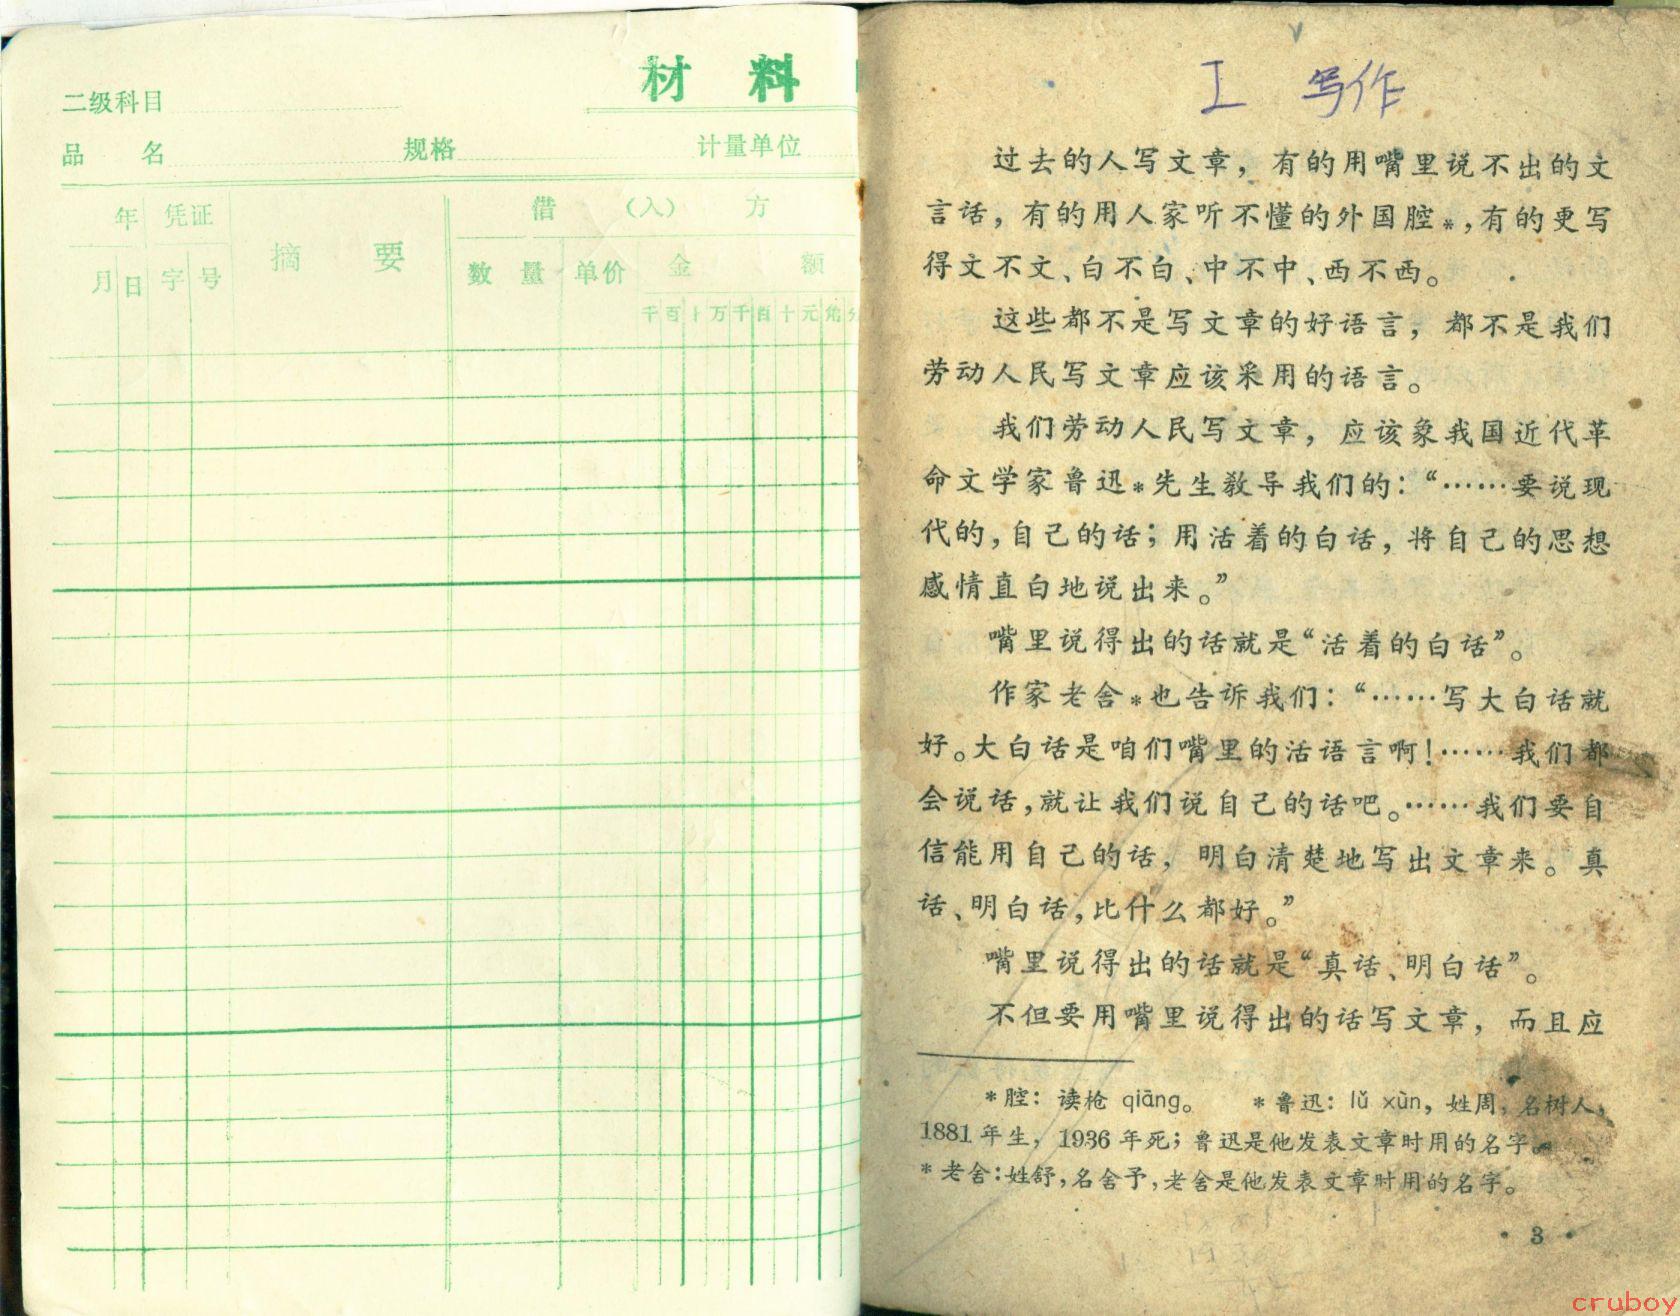 材 料
二级科目
品 名 规格 计量单位
年 凭证 摘 要 借 (入) 方
月 日 字 号 数 量 单价 金 额
千 百 十 万 千 百 十 元 角 分
工 写作
过去的人写文章，有的用嘴里说不出的文
言话，有的用人家听不懂的外国腔*，有的更写
得文不文、白不白、中不中、西不西。
这些都不是写文章的好语言，都不是我们
劳动人民写文章应该采用的语言。
我们劳动人民写文章，应该象我国近代革
命文学家鲁迅*先生教导我们的：“……要说现
代的，自己的话；用活着的白话，将自己的思想
感情直白地说出来。”
嘴里说得出的话就是“活着的白话”。
作家老舍*也告诉我们：“……写大白话就
好。大白话是咱们嘴里的活语言啊！……我们都
会说话，就让我们说自己的话吧。……我们要自
信能用自己的话，明白清楚地写出文章来。真
话、明白话，比什么都好。”
嘴里说得出的话就是“真话、明白话”。
不但要用嘴里说得出的话写文章，而且应
*腔：读枪 qiāng。 *鲁迅：lǔ xùn，姓周，名树人，
1881年生，1936年死；鲁迅是他发表文章时用的名字。
*老舍：姓舒，名舍予，老舍是他发表文章时用的名字。
· 3 ·
cruboy